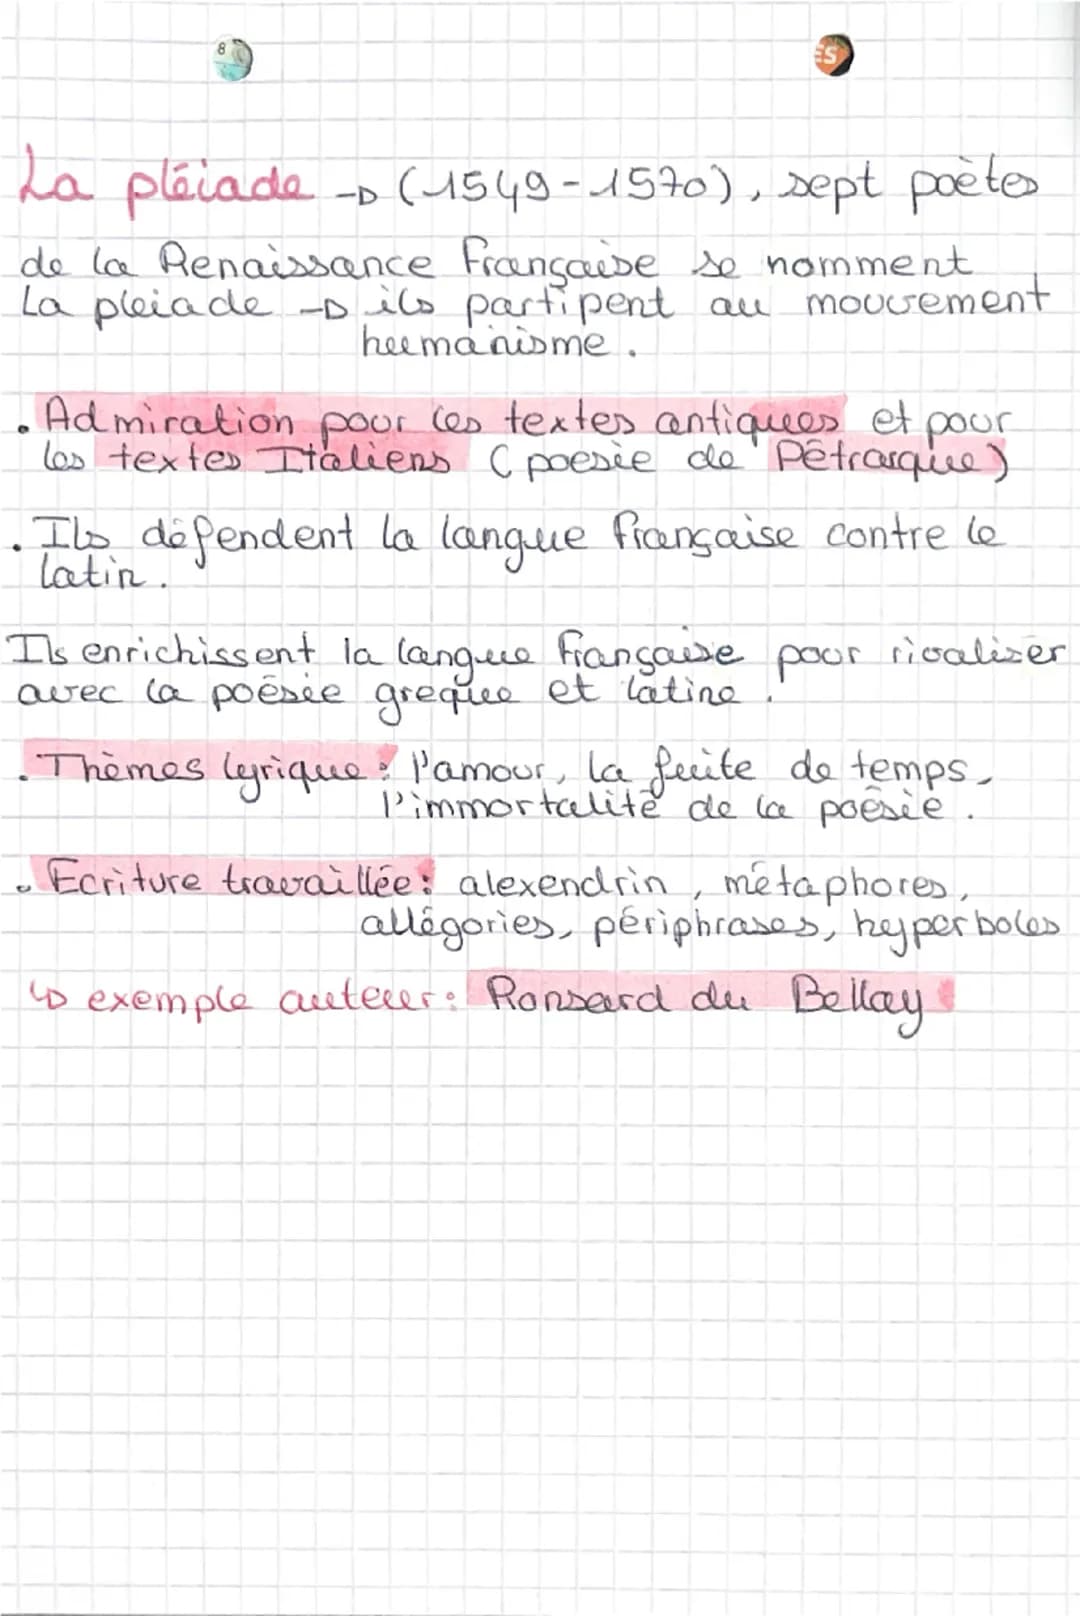 8
ES
La pléiade → (1549-1570), sept poètes
de la Renaissance Française se nomment
La pleiade → ils partipent au mouvement
humanisme.
. Admiration pour les textes antiques et pour
les textes Italiens (poesie de Pétrarque)
. Ils défendent la langue française contre le
latin.
Ils enrichissent la langue française pour rivaliser
avec la poésie greque et latine.
. Thèmes lyrique : l'amour, la fuite de temps,
l'immortalité de la poésie.
. Ecriture travaillée : alexendrin, métaphores,
allégories, périphrases, hyperboles
↳ exemple auteur : Ronsard du Bellay